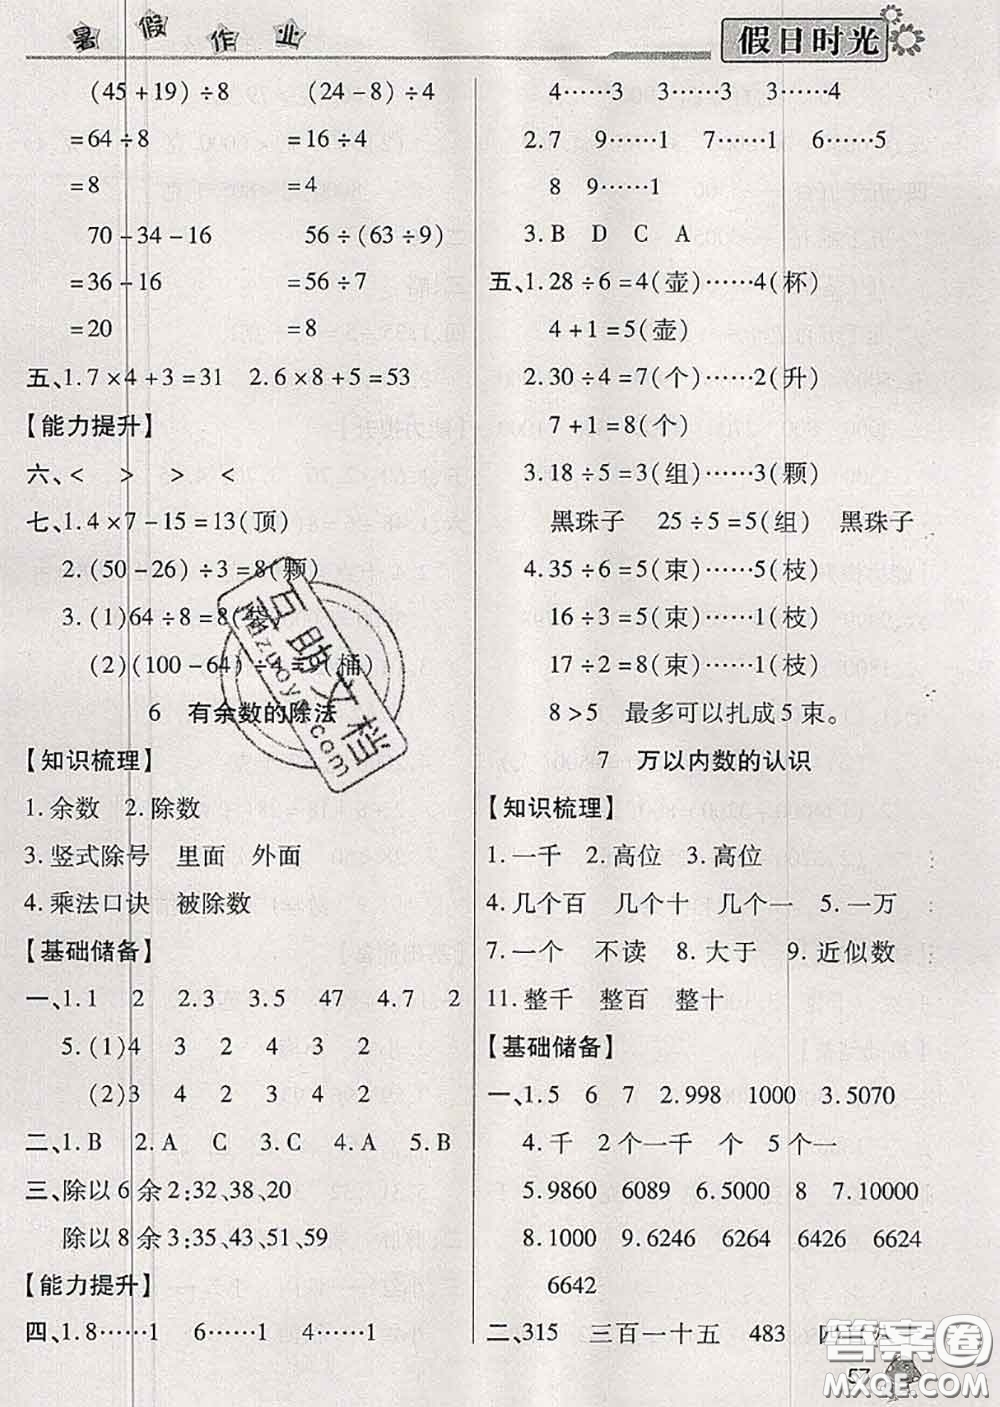 暑假作业
假日时光
(45+19)÷8 (24-8)÷4
=64÷8 =16÷4
=8 =4
70-34-16 56÷(63÷9)
=36-16 =56÷7
=20 =8
五、1.7×4+3=31 2.6×8+5=53
【能力提升】
六、< > > <
七、1.4×7-15=13(顶)
2.(50-26)÷3=8(颗)
3.(1)64÷8=8
(2)(100-64)÷ (桶)
6 有余数的除法
【知识梳理】
1.余数 2.除数
3.竖式除号 里面 外面
4.乘法口诀 被除数
【基础储备】
一、1.1 2 2.3 3.5 47 4.7 2
5.(1)4 3 2 4 3 2
(2)3 4 2 3 4 2
二、1.B 2.A C 3.C 4.A 5.B
三、除以6余2:32、38、20
除以8余3:35、43、51、59
【能力提升】
四、1.8……1 6……1 4……1
4……3 3……3 3……4
2.7 9……1 7……1 6……5
8 9……1
3.B D C A
五、1.28÷6=4(壶)……4(杯)
4+1=5(壶)
2.30÷4=7(个)……2(升)
7+1=8(个)
3.18÷5=3(组)……3(颗)
黑珠子 25÷5=5(组) 黑珠子
4.35÷6=5(束)……5(枝)
16÷3=5(束)……1(枝)
17÷2=8(束)……1(枝)
8>5 最多可以扎成5束。
7 万以内数的认识
【知识梳理】
1.一千 2.高位 3.高位
4.几个百 几个十 几个一 5.一万
7.一个 不读 8.大于 9.近似数
11.整千 整百 整十
【基础储备】
一、1.5 6 7 2.998 1000 3.5070
4.千 2个一千 个 5个一
5.9860 6089 6.5000 8 7.10000
8.1000 9.6246 6264 6426 6624
6642
二、315 三百一十五 483
57
答案圈
MXQE.COM